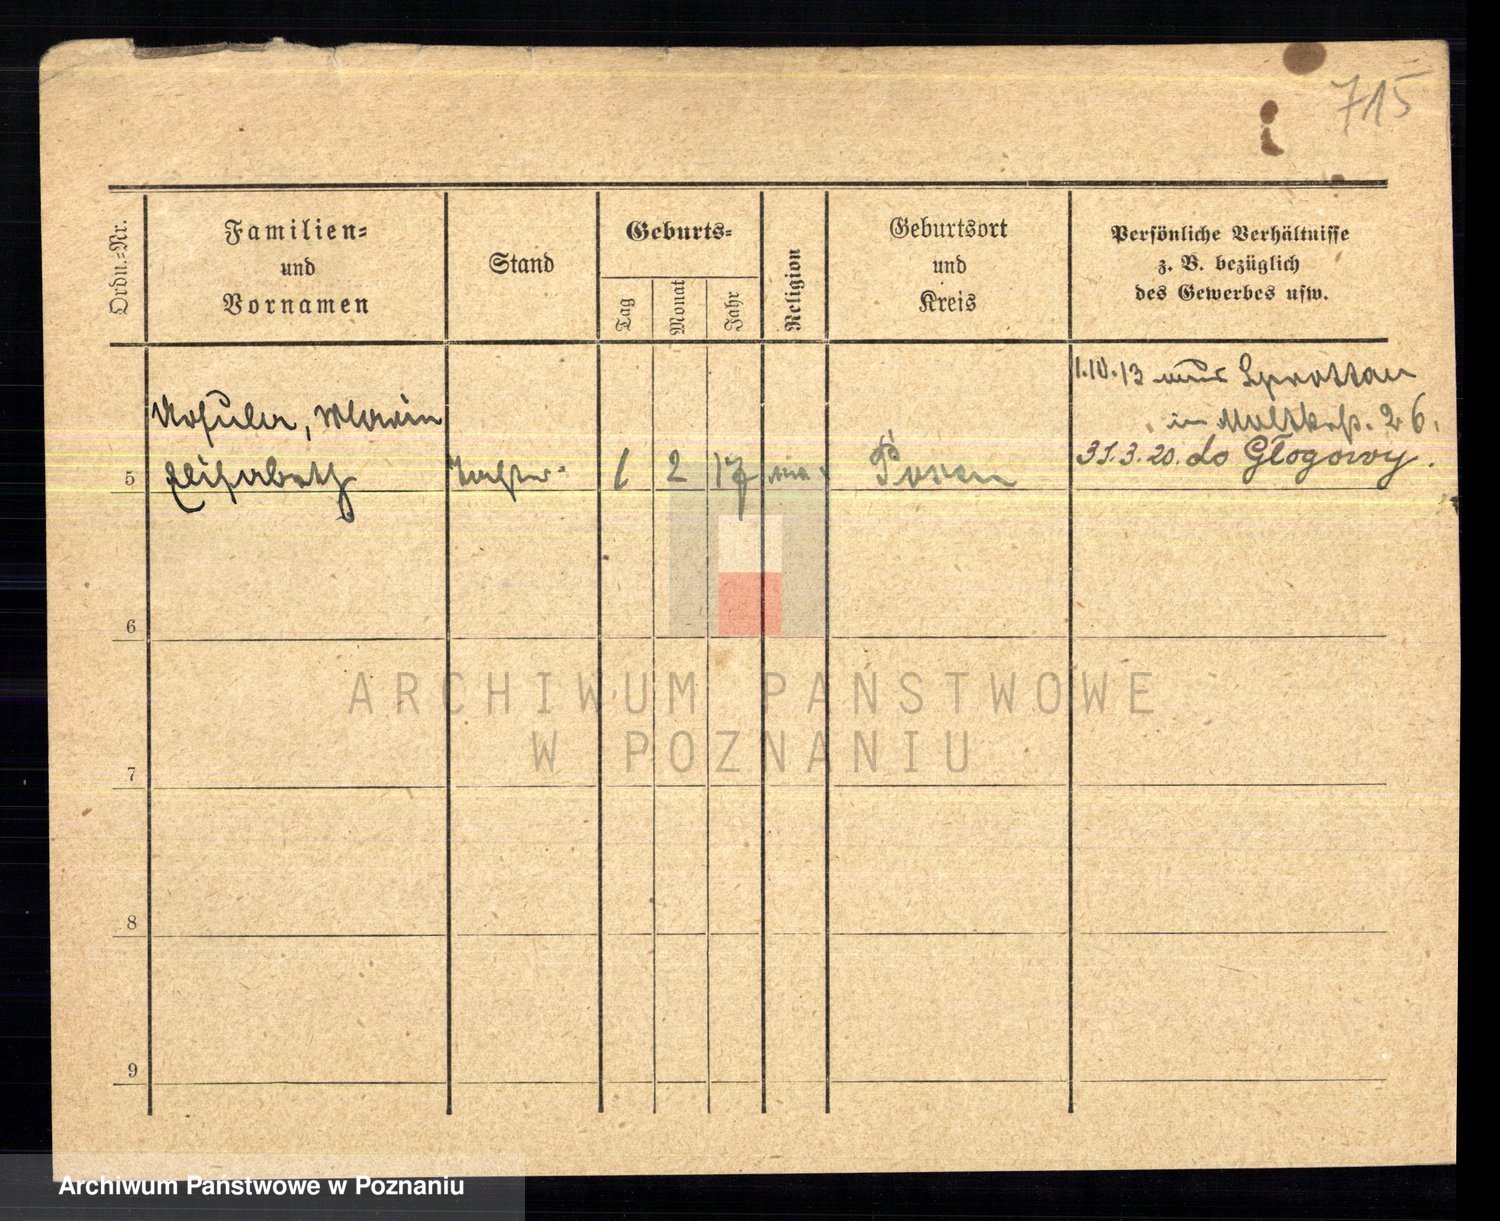 715
Ordn.-Nr.
Familien-
und
Vornamen
Stand
Geburts-
Tag
Monat
Jahr
Religion
Geburtsort
und
Kreis
Persönliche Verhältnisse
z. B. bezüglich
des Gewerbes usw.
1.10.13 aus Sprottau
in Moltkestr. 26.
31.3.20. do Głogowy.
Ursula, Maria
5 Elisabeth Tochter 1 2 17 Posen
6
7
8
9
ARCHIWUM PAŃSTWOWE
W POZNANIU
Archiwum Państwowe w Poznaniu